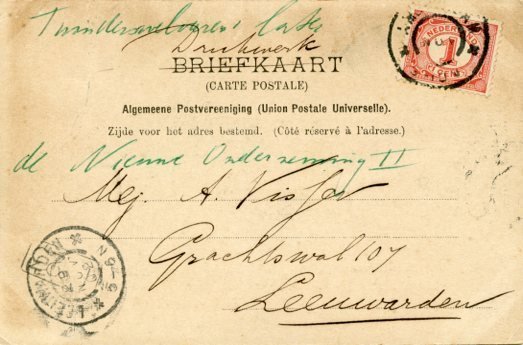 Drukwerk
BRIEFKAART
(CARTE POSTALE)
Algemeene Postvereeniging (Union Postale Universelle).
Zijde voor het adres bestemd. (Côté réservé à l'adresse.)
de Nieuwe Onderneming II
Mej. A. Visser
Grachtswal 107
Leeuwarden
NEDERLAND
1
CENT
LEEUWARDEN